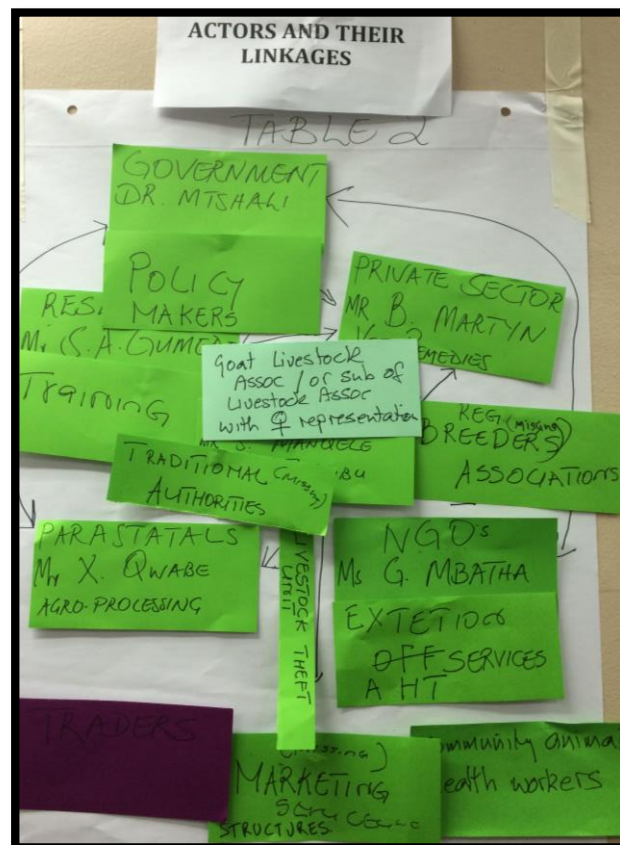 ACTORS AND THEIR
LINKAGES
TABLE 2
GOVERNMENT
DR. MTSHALI
POLICY
MAKERS
PRIVATE SECTOR
MR B. MARTYN
REMEDIES
RES.
Mr S.A. GUMEDE
Training
Goat Livestock
Assoc / or sub of
Livestock Assoc
with ♀ representation
MANQELE
REG (missing)
BREEDERS
ASSOCIATIONS
TRADITIONAL (missing)
AUTHORITIES
PARASTATALS
Mr X. QWABE
AGRO-PROCESSING
LIVESTOCK THEFT
UNIT
NGO's
Ms G. MBATHA
EXTETION
OFF SERVICES
AHT
TRADERS
(missing)
MARKETING
STRUCTURES
ommunity anima
ealth workers